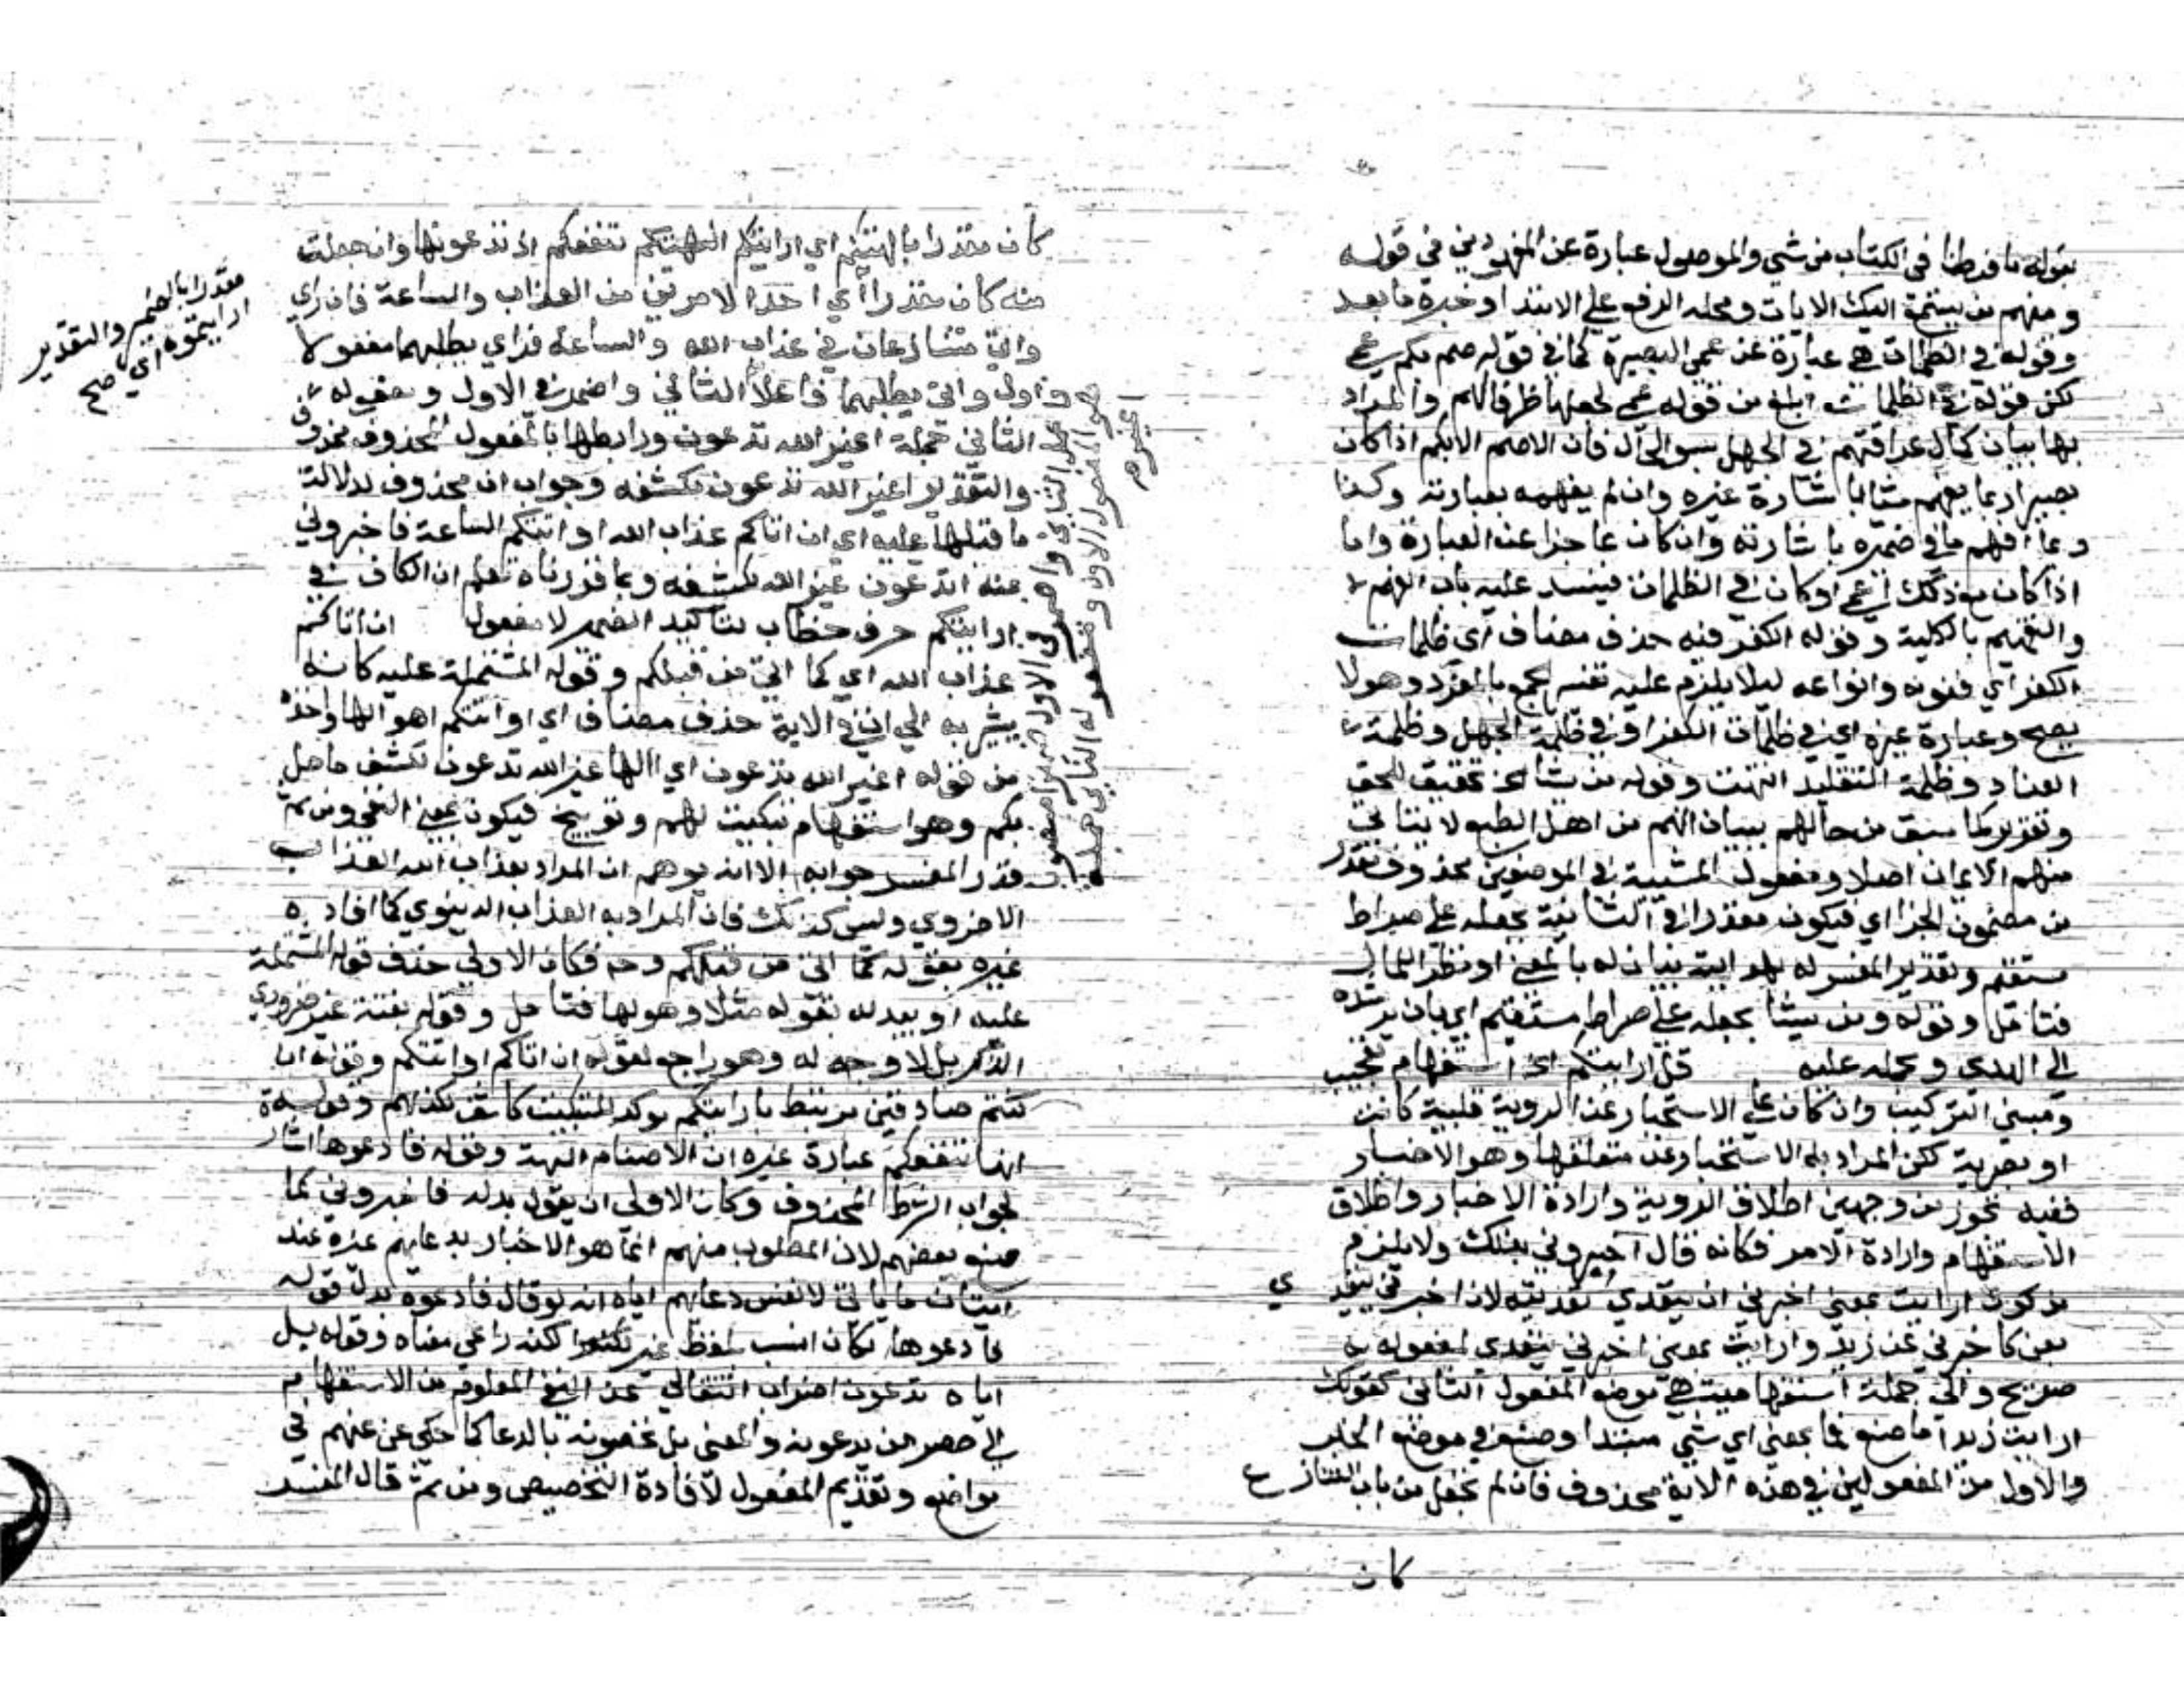 بقوله ما فرطنا في الكتاب من شي والموصول عبارة عن المعهودين في قوله
ومنهم من يستمع اليك الايات ومحله الرفع علي الابتدا وخبره ما بعد
وقوله في الظلمات هي عبارة عن عمي البصيرة كما في قوله صم بكم عمي
لكن قوله في الظلمات ابلغ من قوله عمي لجعلها ظرفا لهم والمراد
بها بيان كمال عراقتهم في الجهل سو الحال فان الاصم الابكم اذا كان
بصيرا ربما يفهم شيا باشارة غيره وان لم يفهمه بعبارته وكذا
ربما افهم ما في ضميره باشارته وان كان عاجزا عنه العبارة واما
اذا كان مع ذلك اعمي او كان في الظلمات فينسد عليه باب الفهم
والتفهيم بالكلية وقوله الكفر فيه حذف مضاف اي ظلمات
الكفر اي فنونه وانواعه ليلا يلزم عليه تفسير الجمع بالمفرد وهو لا
يصح وعبارة غيره اي في ظلمات الكفر او في ظلمة الجهل وظلمة
العناد وظلمة التقليد انتهت وقوله من يشا الخ تحقيق للحق
وتقرير لما سبق من حالهم ببيان انهم من اهل الطبع لا يتاتي
منهم الايمان اصلا ومفعول المشيية في الموضعين محذوف تقدر
من مضمون الجزا اي فيكون مقدرا في الثانية بجعله علي صراط
مستقيم وتقدير المفسر له بهدايته بيان له بالمعني او نظر اللمال
فتامل وقوله ومن يشا يجعله علي صراط مستقيم اي بان يرشده
الي الهدي ويحمله عليه قل ارايتكم الخ استفهام تعجيب
ومبني التركيب وان كان علي الاستخبار عن الروية قلبية كانت
او بصرية لكن المراد به الاستخبار عن متعلقها وهو الاخبار
ففيه تجوز من وجهين اطلاق الروية وارادة الاخبار واطلاق
الاستفهام وارادة الامر فكانه قال اخبروني بذلك ولا يلزم
من كون ارايت بمعني اخبرني ان يتعدي تعديته لان اخبرني يتعدي
بعن كاخبرني عن زيد وارايت بمعني اخبرني يتعدي لمفعول به
صريح والي جملة استفهامية هي موضع المفعول الثاني كقولك
ارايت زيدا ما صنع فما بمعني اي شي مبتدا وصنع في موضع الخبر
والاول من المفعولين في هذه الاية محذوف فان لم تجعل من باب التنازع
كان
كان مقدرا بالهتكم اي ارايتكم الهتكم تنفعكم اذ تدعونها وان جعلت
منه كان مقدرا اي احد الامرين من العذاب والساعة فان راي
واتي متنازعان في عذاب الله والساعة فراي يطلبهما مفعولا
واول واتي يطلبهما فاعلا الثاني واضمر في الاول ومفعوله
الثاني جملة اغير الله تدعون ورابطها بالمفعول المحذوف محذوف
والتقدير اغير الله تدعون لكشفه وجواب ان محذوف لدلالة
ما قبلها عليه اي ان اتاكم عذاب الله او اتتكم الساعة فاخبروني
عنه اتدعون غير الله لكشفه وبما قررناه تعلم ان الكاف في
ارايتكم حرف خطاب لتاكيد الضمير لا مفعول ان اتاكم
عذاب الله اي كما اتي من قبلكم وقوله المشتملة عليه كانه
يشير به الي ان في الاية حذف مضاف اي او اتتكم اهوالها واخذه
من قوله اغير الله تدعون اي االها غير الله تدعون لكشف ما حل
بكم وهو استفهام تبكيت لهم وتوبيخ فيكون بمعني النفي ومن ثم
قدر المفسر جوابه الا انه يوهم ان المراد بعذاب الله العذاب
الاخروي وليس كذلك فان المراد به العذاب الدنيوي كما افاده
غيره بقوله كما اتي من قبلكم وحه فكان الاولي حذف قوله المشتملة
عليه او يبدله بقوله مثلا وهولها فتامل وقوله بغتة غير ضروري
الذكر بل لا وجه له وهو راجع لقوله ان اتاكم او اتتكم وقوله ان
كنتم صادقين مرتبط بارايتكم موكد للتبكيت كاشف عن كذبهم وقوله
انها تنفعكم عبارة غيره ان الاصنام الهة وقوله فادعوها اشار
لجواب الشرط المحذوف وكان الاولي ان يقول بدله فاخبروني كما
صنع بعضهم لان المطلوب منهم انما هو الاخبار بدعايهم غيره عند
اتيان ما ياتي لا نفس دعايهم اياه انه لو قال فادعوه بدل قوله
فادعوها لكان انسب بلفظ غير لكنه راعي معناه وقوله بل
اياه تدعون اضراب انتقالي عن النفي المعلوم من الاستفهام
الي حصر من يدعونه والمعني بل تخصونه بالدعا كما حكي عن عنهم في
مواضع وتقديم المفعول لافادة التخصيص ومن ثم قال المفسر
مقدرا بالضمير والتقدير
ارايتموه اي صح